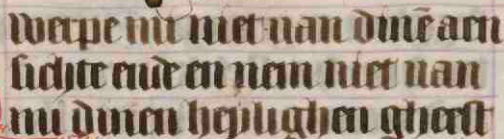 werpe mi niet van dinē aen
sichte ende en nem niet van
mi dinen heylighen gheest